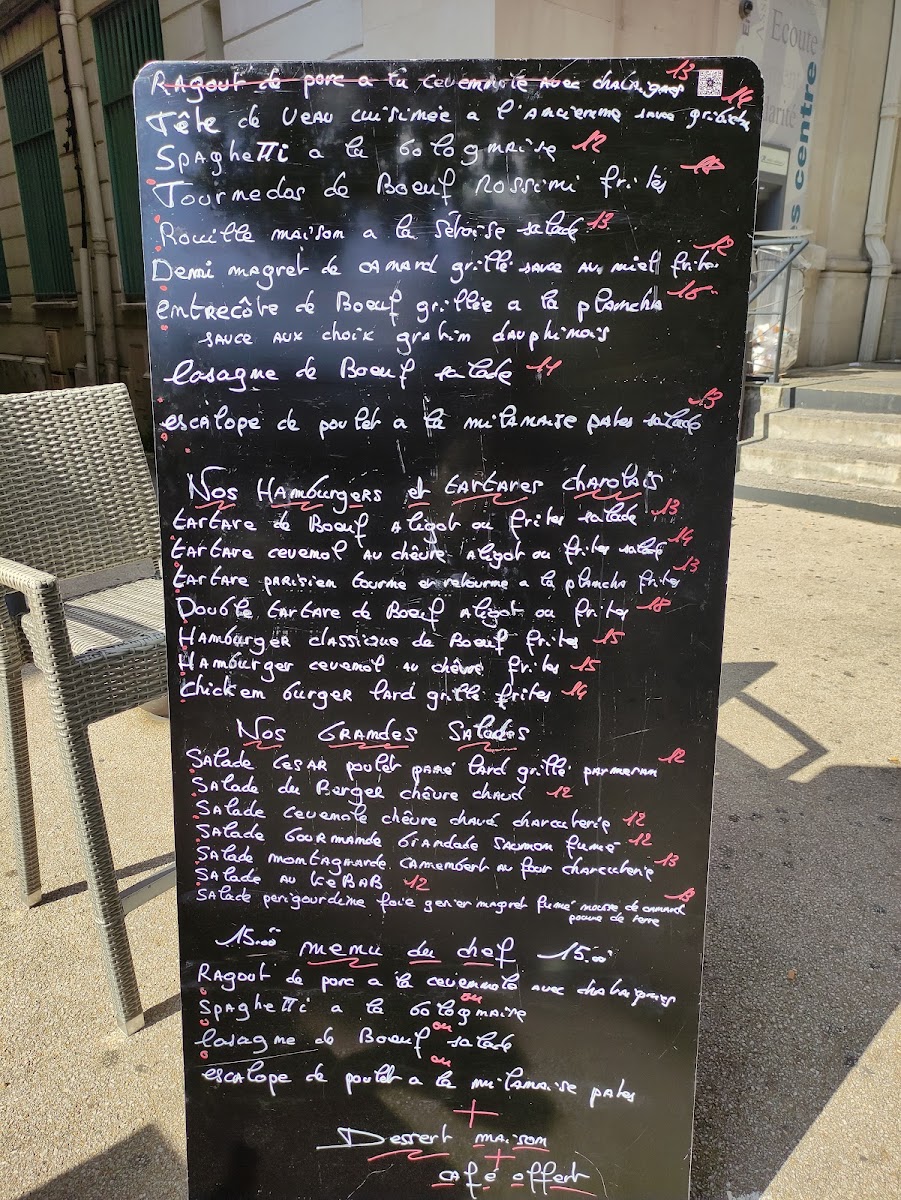 Ecoute
arité
s centre
Ragout de porc a la cevennole avec chataignes 13
Tête de veau cuisinée a l'ancienne sauce gribiche 14
Spaghetti a la bolognaise 12
Tournedos de Boeuf Rossini frites 18
Rouille maison a la Sétoise salade 13
Demi magret de canard grillé sauce au miel frites 12
entrecôte de Boeuf grillée a la plancha 16
sauce aux choix gratin dauphinois
lasagne de Boeuf salade 11
escalope de poulet a la milanaise pates salade 13
Nos Hamburgers et tartares charolais
tartare de Boeuf aligot ou frites salade 13
tartare cevenol au chêvre aligot ou frites salade 14
tartare parisien tourne et retourne a la plancha frites 13
Double tartare de Boeuf aligot ou frites 18
Hamburger classique de Boeuf frites 15
Hamburger cevenol au chêvre frites 15
chicken burger lard grillé frites 14
Nos Grandes Salades
Salade Cesar poulet pané lard grillé parmesan 12
Salade du Berger chêvre chaud 12
Salade cevenole chêvre chaud charcuterie 12
Salade Gourmande brandade saumon fumé 12
Salade montagnarde camembert au four charcuterie 13
Salade au KeBAB 12
Salade perigourdine foie gesier magret fumé mousse de canard 13
pomme de terre
15.00 menu du chef 15.00
Ragout de porc a la cevennole avec chataignes
ou
Spaghetti a la bolognaise
ou
lasagne de Boeuf salade
ou
escalope de poulet a la milanaise pates
+
Dessert maison
+
café offert